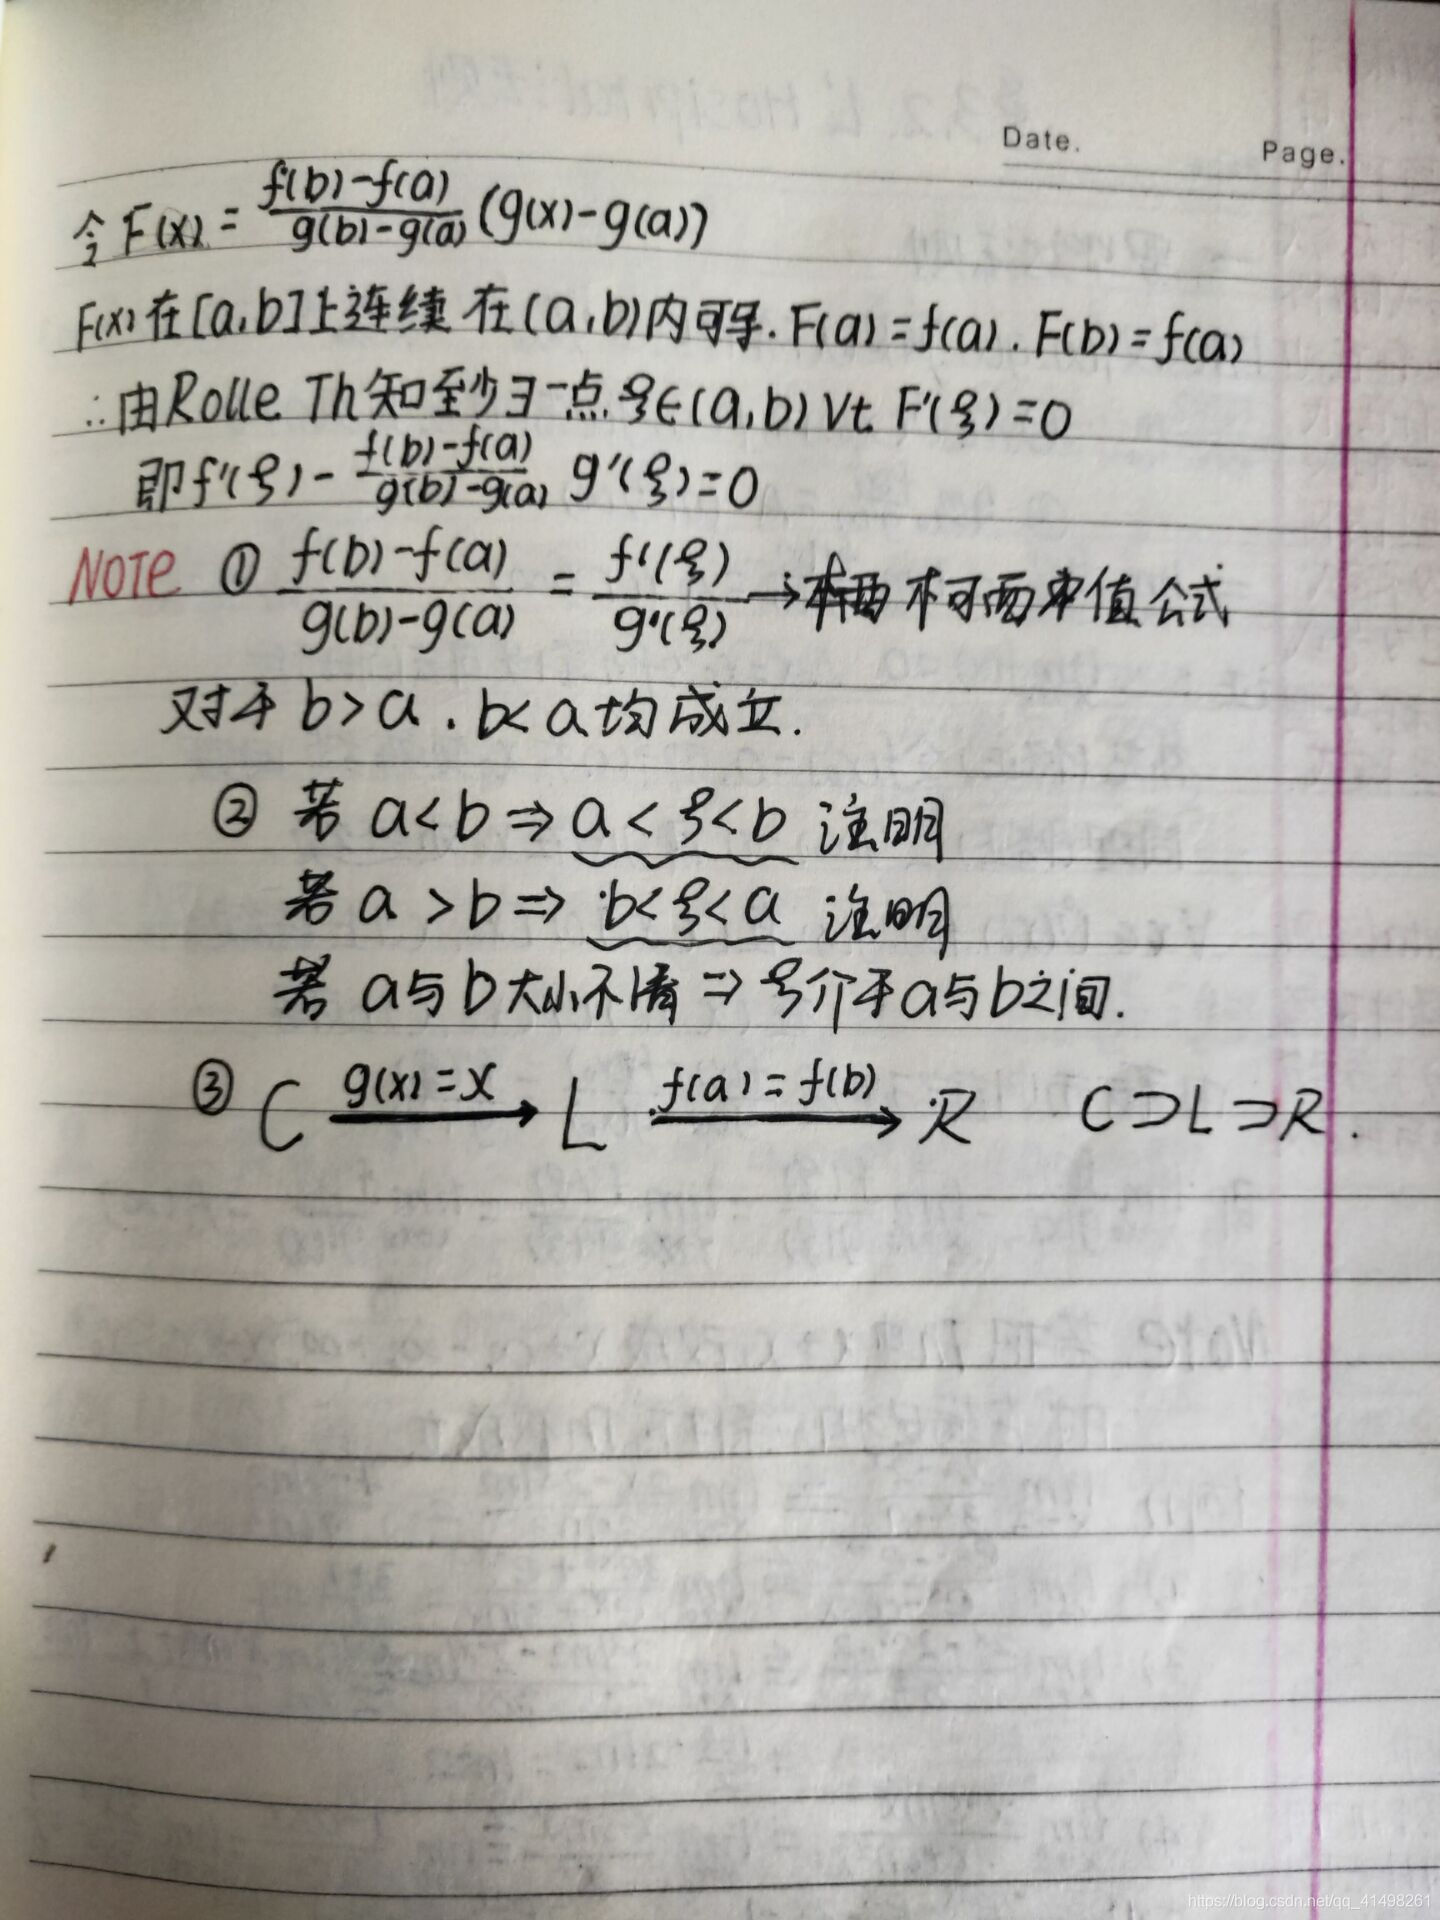 Date. Page.
令 F(x) = \frac{f(b)-f(a)}{g(b)-g(a)} (g(x)-g(a))
F(x) 在[a,b]上连续 在(a,b)内可导. F(a)=f(a). F(b)=f(a)
∴由Rolle Th知至少∃一点ξ∈(a,b) Vt F'(ξ)=0
即f'(ξ) - \frac{f(b)-f(a)}{g(b)-g(a)} g'(ξ)=0
NOTE ① \frac{f(b)-f(a)}{g(b)-g(a)} = \frac{f'(ξ)}{g'(ξ)} → 柯西中值公式
对于 b>a . b<a 均成立.
② 若 a<b ⇒ a<ξ<b 注明
若 a>b ⇒ b<ξ<a 注明
若 a与b大小不清 ⇒ ξ介于a与b之间.
③ C \xrightarrow{g(x)=x} L \xrightarrow{f(a)=f(b)} R C⊃L⊃R.
https://blog.csdn.net/qq_41498261